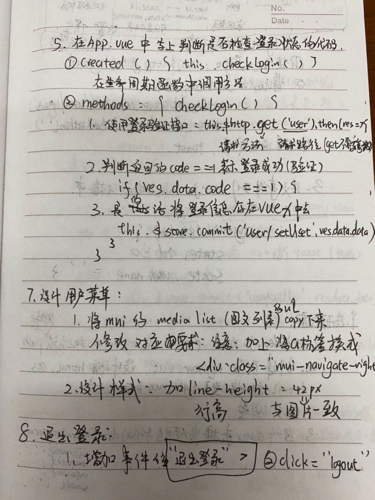 No.
Date
5. 在App.vue 中写上判断是否检查登录状态的代码.
① created ( ) { this. checkLogin ( ) }
在生命周期函数中调用方法
② methods { checkLogin ( ) {
1. 使用登录验证接口 = this.$http.get ('user').then(res=>{
请求方法 请求路径 (get
2. 判断返回的code ==1 表示登录成功 (验证)
if ( res. data. code === 1) {
3. 是的话将登录信息存在vue 中去
this. $ store. commit ('user/setUser', res.data.data)
}
}
7. 设计用户菜单:
1. 将mui 的 media list (图文列表) copy下来
修改 对应 注意: 加上 将a标签换成
<div class = "mui-navigate-right
2. 设计样式: 加 line-height = 42px
行高 与图片一致
8. 退出登录:
1. 增加事件 "退出登录" > @click = "logout"